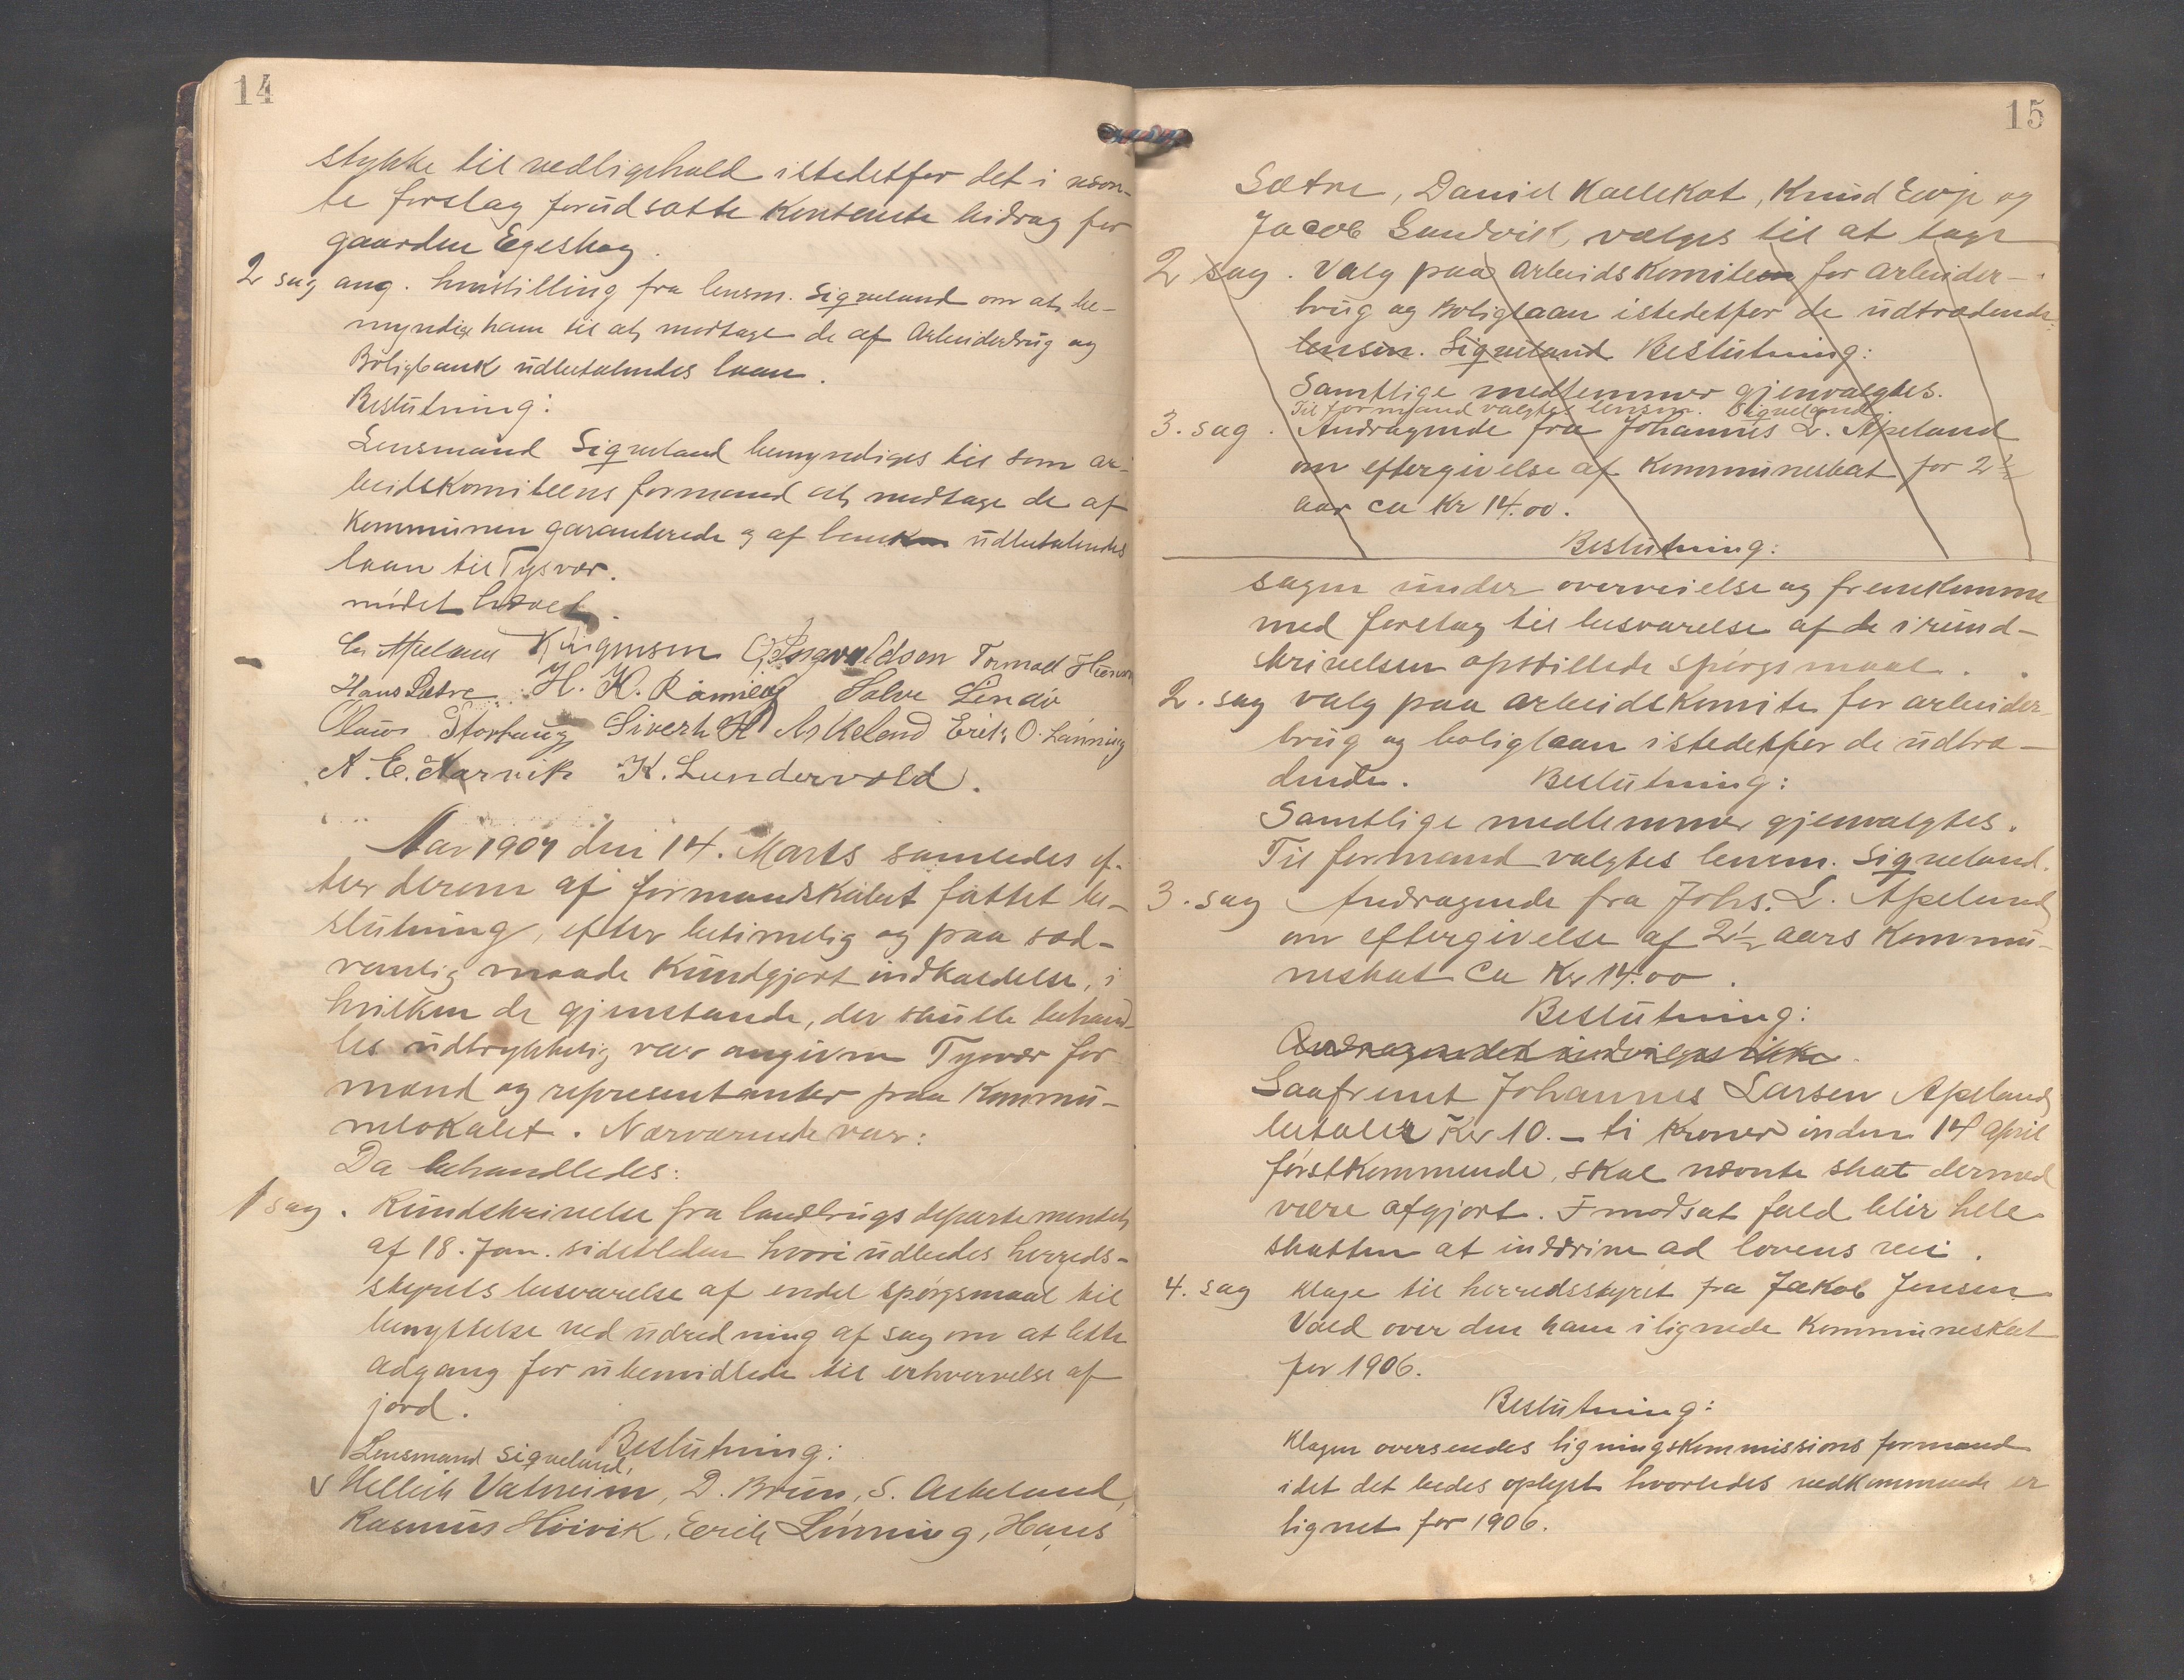 14
stykke til vedligehold istedetfor det i nævn-
te forslag forudsatte kontante bidrag for
gaarden Egeskog.
2 sag ang. henstilling fra lensm. Siqveland om at be-
myndige ham til at modtage de af Arbeiderbrug og
Boligbank udbetalendes laan.
Beslutning:
Lensmand Siqveland bemyndiges til som ar-
beidskomiteens formand at modtage de af
Kommunen garanterede og af banken udbetalendes
laan til Tysvær.
mødet hævet.
L. Apeland K. Sigmsen G. Ingvaldson Tormod
Hans Sætre. H. H. Solve Lindø
Olaus Storhaug Sivert H Askeland Erik O. Lønning
A. E. Aarvik K. Lundervold.
Aar 1907 den 14. Marts samledes ef-
ter derom af formandskabet fattet be-
slutning, efter betimelig og paa sæd-
vanlig maade kundgjort indkaldelse, i
hvilken de gjenstande, der skulle behand-
les udtrykkelig var angiven Tysvær for
mænd og representanter paa Kommu-
nelokalet. Nærværende var:
Da behandledes:
1 sag. Rundskrivelse fra landbrugsdepartementet
af 18. Jan. sidstleden hvori udbedes herreds-
styrets besvarelse af endel spørgsmaal til
benyttelse ved udredning af sag om at lette
adgang for ubemidlede til erhvervelse af
jord.
Beslutning:
Lensmand Siqveland,
Mellich Vatneim, D. Brun, S. Askeland,
Rasmus Høivik, Eerik Lønning, Hans
15
Sætre, Daniel Kallekot, Knud Evje og
Jacob Sandvik, vælges til at tage
2 sag. Valg paa Arbeidskomiteen for arbeider-
brug og Boliglaan istedetfor de udtrædende
lensm. Siqveland Beslutning:
Samtlige medlemmer gjenvalgtes.
Til formand valgtes lensm. Siqveland.
3. sag. Andragende fra Johannes L. Apeland
om eftergivelse af Kommuneskat for 2½
aar ca Kr 14.00.
Beslutning:
sagen under overveielse og fremkomme
med forslag til besvarelse af de i rund-
skrivelsen opstillede spørgsmaal.
2. sag valg paa arbeidskomite for arbeider-
brug og boliglaan istedetfor de udtræ-
dende. Beslutning:
Samtlige medlemmer gjenvalgtes.
Til formand valgtes lensm. Siqveland.
3. sag Andragende fra Johs. L. Apeland
om eftergivelse af 2½ aars Kommu-
neskat ca Kr 14.00.
Beslutning:
Andragendet indvilges ikke.
Saafremt Johannes Larsen Apeland
betaler Kr 10.- ti Kroner inden 14 April
førstkommende, skal nævnte skat dermed
være afgjort. I modsat fald blir hele
skatten at inddrive ad lovens vei.
4. sag Klage til herredsstyret fra Jakob Jensen
Vaed over den ham ilignede Kommuneskat
for 1906.
Beslutning:
Klagen oversendes ligningskommissions formand
idet det bedes oplyst hvorledes vedkommende er
lignet for 1906.